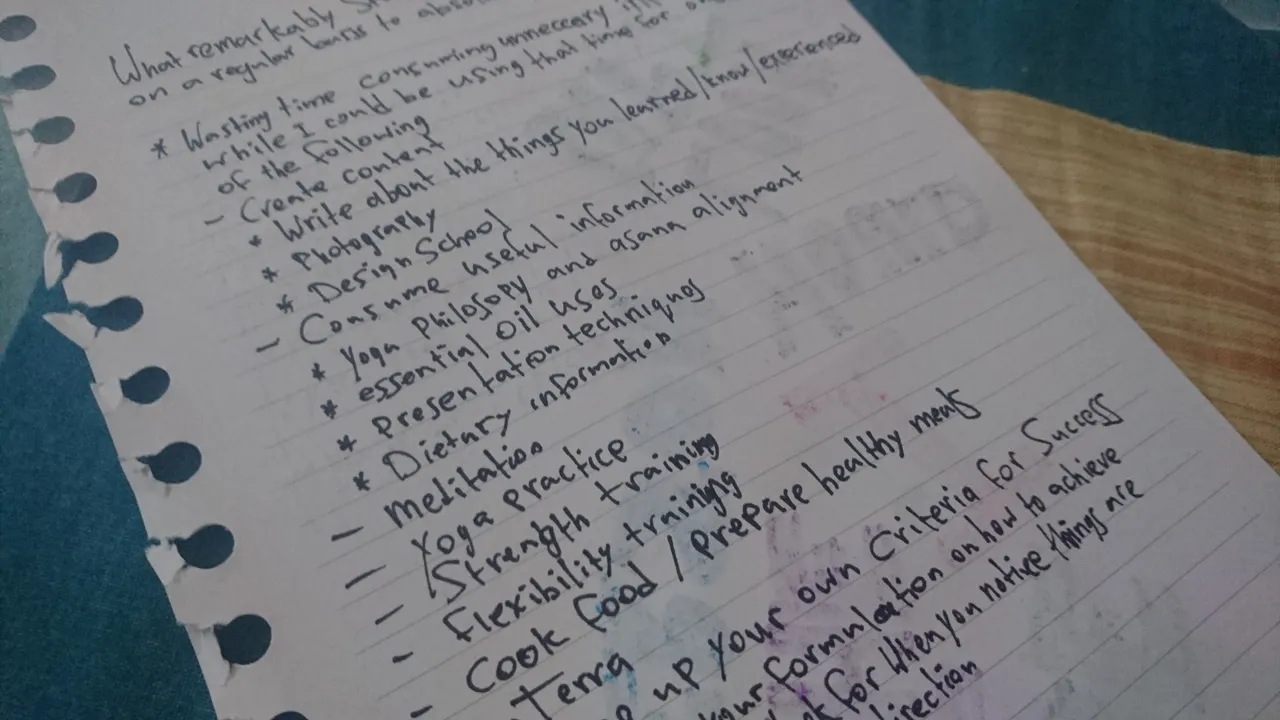 What remarkably
on a regular basis to
* Wasting time consuming unneccery
while I could be using that time for
of the following
- Create content
* Write about the things you learned/know/experienced
* Photography
* Design School
- Consume useful information
* Yoga Philosopy and asana alignment
* essential oil uses
* Presentation techniques
* Dietary information
- Meditation
- Yoga practice
- Strength training
- Flexibility training
- Cook food / prepare healthy meals
Terra
up your own Criteria for Success
your formulation on how to achieve
for when you notice things are